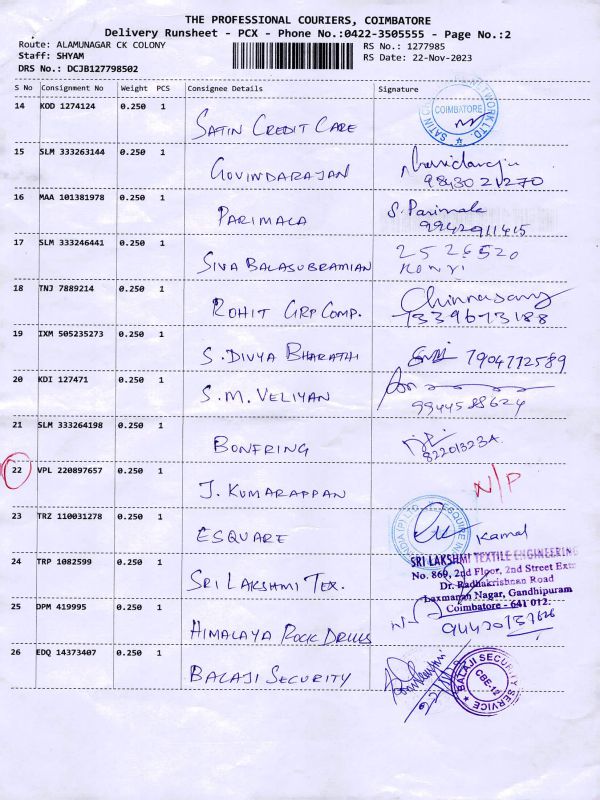 THE PROFESSIONAL COURIERS, COIMBATORE
Delivery Runsheet - PCX - Phone No.:0422-3505555 - Page No.:2
Route: ALAMUNAGAR CK COLONY
RS No.: 1277985
Staff: SHYAM
*1277985*
RS Date: 22-Nov-2023
DRS No.: DCJB127798502
S No Consignment No Weight PCS Consignee Details Signature
14 KOD 1274124 0.250 1 SATIN CREDIT CARE
COIMBATORE
15 SLM 333263144 0.250 1 GOVINDARAJAN
9843021270
16 MAA 101381978 0.250 1 PARIMALA S. Parimala
9942911415
17 SLM 333246441 0.250 1 SIVA BALASUBRAMIAN 2526520
18 TNJ 7889214 0.250 1 ROHIT GRP COMP. Chinnasamy
7339673188
19 IXM 505235273 0.250 1 S. DIVYA BHARATHI 7904772589
20 KDI 127471 0.250 1 S.M. VELIYAN
9944588624
21 SLM 333264198 0.250 1 BONFRING
22 VPL 220897657 0.250 1 J. KUMARAPPAN N/P
23 TRZ 110031278 0.250 1 ESQUARE Kamal
24 TRP 1082599 0.250 1 SRI LAKSHMI TEX.
SRI LAKSHMI TEXTILE ENGINEERING
No. 869, 2nd Floor, 2nd Street Extn
Dr. Radhakrishnan Road
Laxmanan Nagar, Gandhipuram
Coimbatore - 641 012.
25 DPM 419995 0.250 1 HIMALAYA ROCK DRILLS
94420137626
26 EDQ 14373407 0.250 1 BALAJI SECURITY
BALAJI SECURITY SERVICE
CBE-12